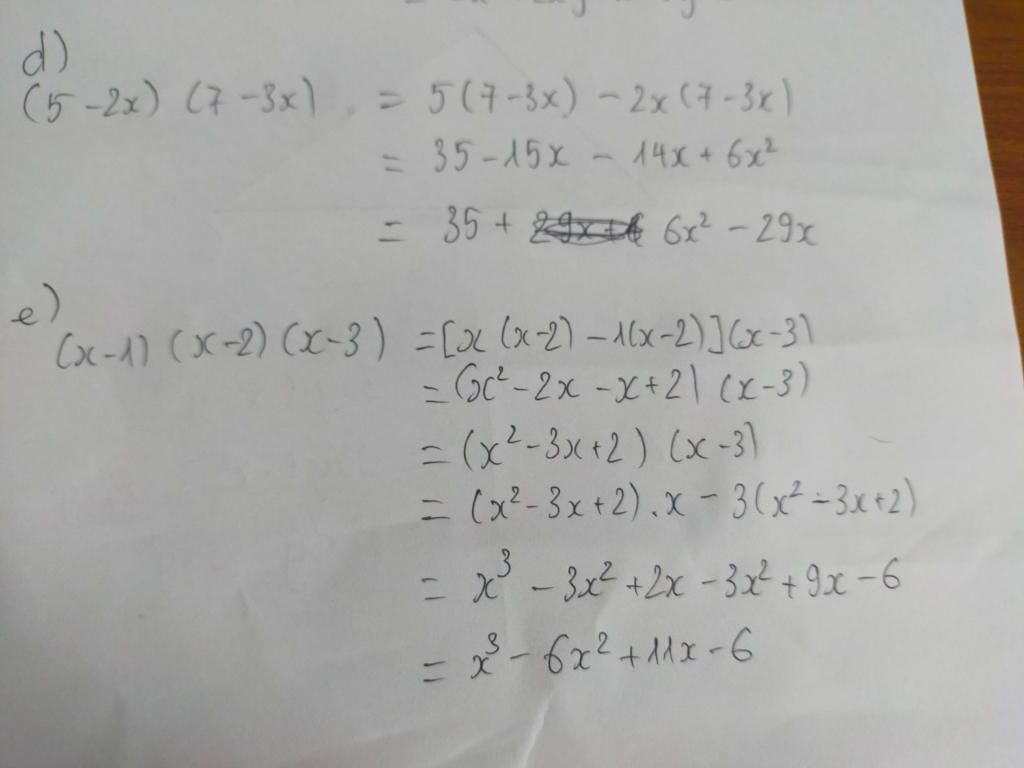 d)
(5 - 2x) (7 - 3x) = 5(7 - 3x) - 2x(7 - 3x)
= 35 - 15x - 14x + 6x²
= 35 + 6x² - 29x
e)
(x-1) (x-2) (x-3) = [x (x-2) - 1(x-2)](x-3)
= (x² - 2x - x + 2) (x-3)
= (x² - 3x + 2) (x-3)
= (x² - 3x + 2) . x - 3(x² - 3x + 2)
= x³ - 3x² + 2x - 3x² + 9x - 6
= x³ - 6x² + 11x - 6